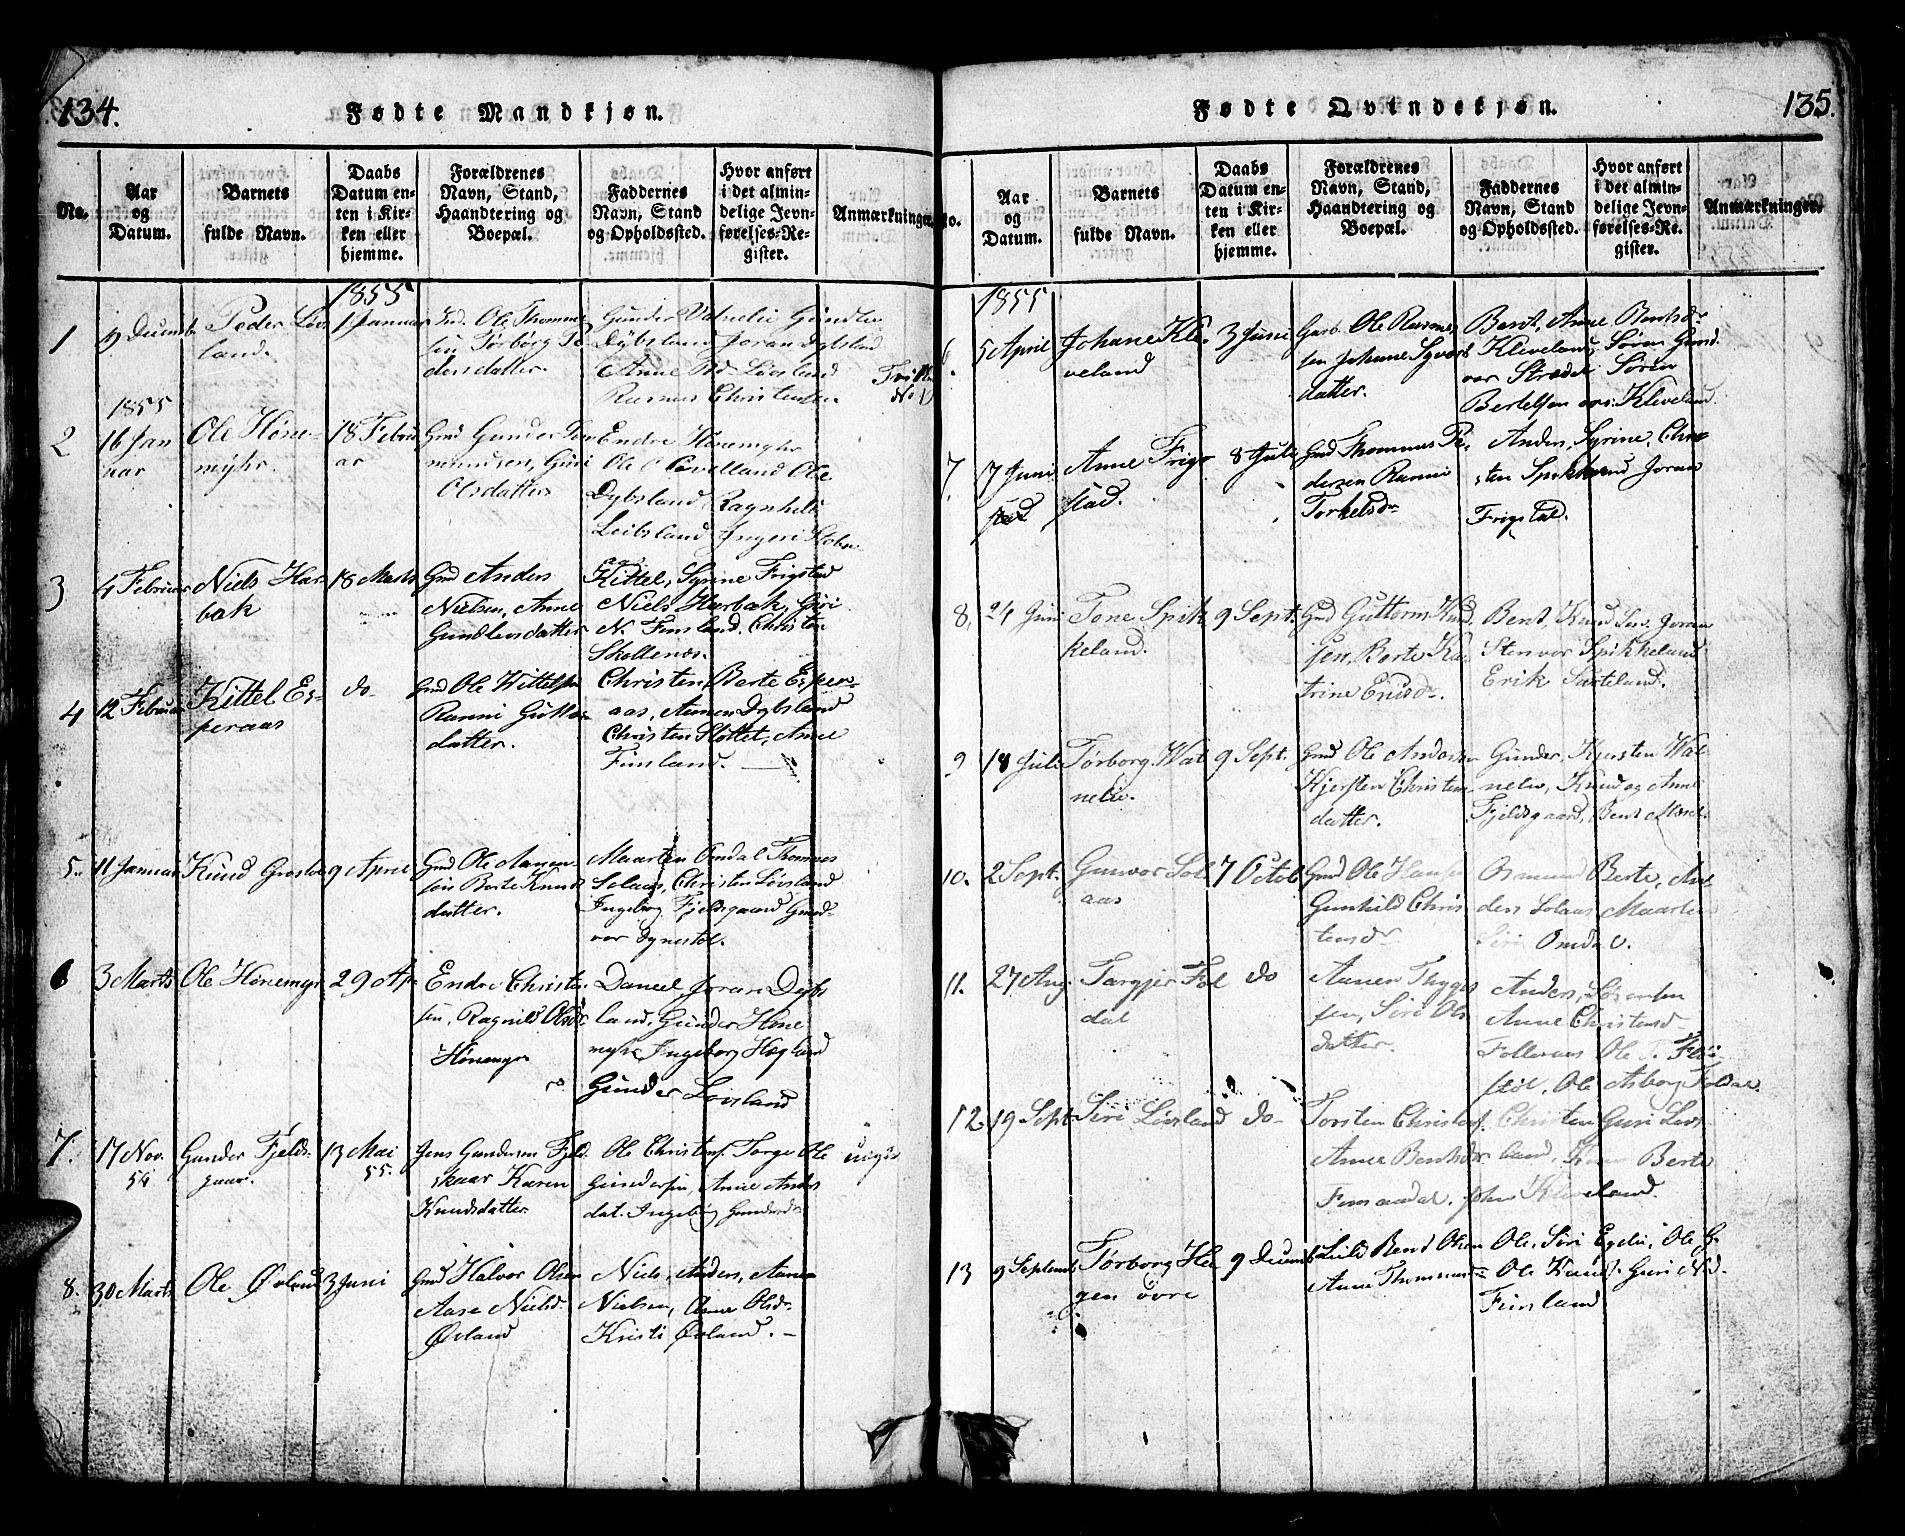 134.
Fødte Mandkjøn.
No.
Aar
og
Datum.
Barnets
fulde Navn.
Daabs
Datum en-
ten i Kir-
ken eller
hjemme.
Forældrenes
Navn, Stand,
Haandtering og
Boepæl.
Faddernes
Navn, Stand
og Opholdssted.
Hvor anført
i det almin-
delige Jevn-
førelses-Re-
gister.
Anmærkninger.
1855
1
9 Decembr
Peder Løvs
land.
1 Januar
Ind. Ole Thomme
sen Tørborg Pe
dersdatter.
Gunder Valnelie Gundlev
Dybsland Joran Dybsland
Anne Løvsland
Rasmus Christensen
1855
2
16 Jan
uar
Ole Høne-
myhr.
18 Febru
ar
Gmd Gunder
mundsen, Guri
Olsdatter
Endre Hønemyhr
Ole Ole
Dybsland Ragnhild
Leibsland Ingeri
3
4 Februar
Niels Har
bak
18 Marts
Gmd Anders
Nielsen, Anne
Gundlevsdatter
Kittel, Syrine Frigstad
Niels Harbak, Guri
N. Finsland. Christen
Skollenæs.
4
12 Februar
Kittel Es-
peraas
do
Gmd Ole Kittelsen
Ranni Gutte
datter.
Christen, Berte Esper-
aas, Aanen Dybsland
Christen Slottet, Anne
Finsland.
5.
11 Januar
Knud
9 April
Gmd Ole Aanen-
sen Berte Knuds
datter.
Maarten Omdal Thomas
Solaas, Christen Løvsland
Ingeborg Fjeldsgaard Gun-
vor
6
3 Marts
Ole Hönemyr
29 Ap
Endre Christen
sen, Ragnild Olsdr
Hönemyr
Daniel, Joran Dybs
land. Gunder Høne
myhr, Ingeborg Hægland
Gunder Lovsland
7.
17 Nov.
54
Gunder Fjelds-
gaar.
13 Mai
55.
Jens Gundersen Fjeld
skaar Karen
Knudsdatter.
Ole Christens. Torge Ole
Gundersen, Anne Anders
dat. Ingeborg Gundersdr
8.
30 Marts
Ole Øvland
3 Juni
Gmd Halvor Olsen
Aase Nielsd.
Øvland
Niels, Anders, Aanen
Nielsen, Anne Olsdr.
Kristi Øvland.
135.
Fødte Qvindekjøn.
No.
Aar
og
Datum.
Barnets
fulde Navn.
Daabs
Datum en-
ten i Kir-
ken eller
hjemme.
Forældrenes
Navn, Stand,
Haandtering og
Boepæl.
Faddernes
Navn, Stand
og Opholdssted.
Hvor anført
i det almin-
delige Jevn-
førelses-Re-
gister.
Anmærkninger.
1855
6.
5 April
Johane Kle-
veland
3 Juni
Gaarb. Ole Rasmus
sen Johane Syvers
datter.
Bent, Anne Bentsdr
Kleveland, Søren Gund
vor Strædet Søren
Bertelsen Kleveland.
7.
17 Juni
Anne Frig-
stad.
8 Juli
Gmd Thommas Pe-
dersen Ranni
Torkelsdr
Anders, Syrine, Chri-
sten Spikkeland Joran
Frigstad.
8.
24 Juni
Tone Spik
keland.
9 Sept.
Gmd Guttorm Knud
sen, Berte Ka
trine Eriksdr.
Bent, Knud Joran
Stenvor Spikkeland
Erik Sarteland.
9
18 Juli
Tørborg Wal
nelie.
9 Sept.
Gmd Ole Andersen
Kjersten Christens
datter.
Gunder, Kjersten Wal-
nelie, Knud og Anne
Fjeldsgaard, Bent
10.
2 Sept.
Gunvor Sol
aas
7 Octob
Gmd Ole Hans
Gunhild Chris
tensdr
Osmund Berte, An
ders Solaas Maarten
Siri Omdal.
11.
27 Aug.
Targjer Fol
dal
do
Aanen Thygges
sen, Siri Ols
datter.
Anders, Lørentsen
Anne Christensd
Folleraas Ole T.
Ole Asborg Foldal
12.
19 Sept.
Siri Løvsland
do
Torsten Christens.
Anne Bentsdr
Finsaadal.
Christen Guri Løvs
land, Berte
John Kleveland.
13
9 Septemb
Tørborg He
gen övre
9 Decemb
Bend Olsen
Anne Thommasdr
Ole, Siri Egelie, Ole G.
Ole Knuds. Guri
Finsland